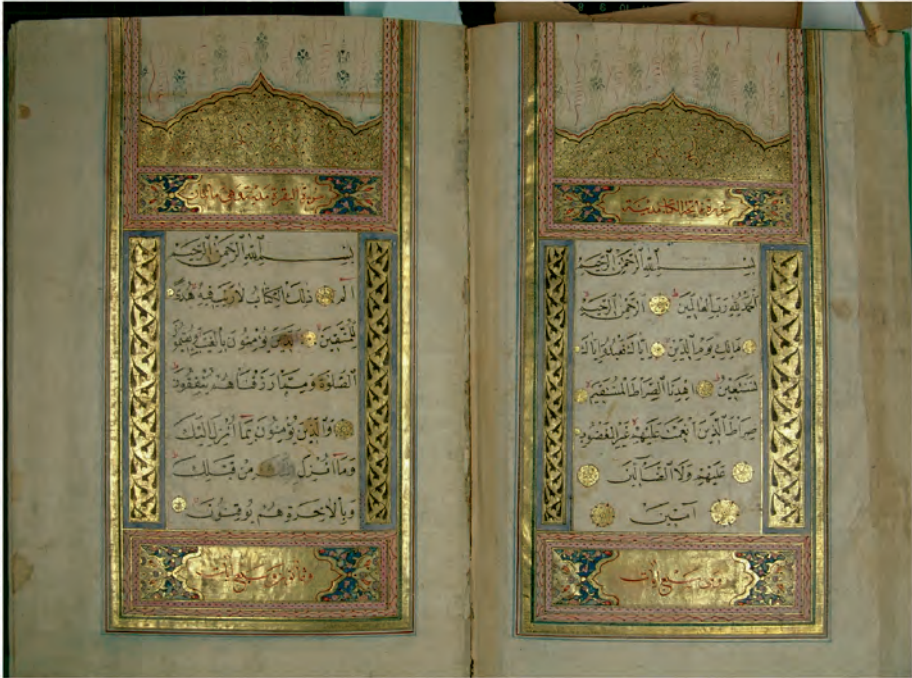 سورة فاتحة الكتاب مدنية
بِسْمِ اللَّهِ الرَّحْمَنِ الرَّحِيمِ
اَلْحَمْدُ لِلَّهِ رَبِّ الْعَالَمِينَ الرَّحْمَنِ الرَّحِيمِ
مَالِكِ يَوْمِ الدِّينِ اِيَّاكَ نَعْبُدُ وَاِيَّاكَ
نَسْتَعِينُ اِهْدِنَا الصِّرَاطَ الْمُسْتَقِيمَ
صِرَاطَ الَّذِينَ اَنْعَمْتَ عَلَيْهِمْ غَيْرِ الْمَغْضُوبِ
عَلَيْهِمْ وَلَا الضَّالِّينَ
آمِينَ
وهي سبع ايات
سورة البقرة مدنية وهي مائتان
بِسْمِ اللَّهِ الرَّحْمَنِ الرَّحِيمِ
الم ذَلِكَ الْكِتَابُ لَا رَيْبَ فِيهِ هُدًى
لِلْمُتَّقِينَ الَّذِينَ يُؤْمِنُونَ بِالْغَيْبِ وَيُقِيمُونَ
الصَّلَوةَ وَمِمَّا رَزَقْنَاهُمْ يُنْفِقُونَ
وَالَّذِينَ يُؤْمِنُونَ بِمَا اُنْزِلَ اِلَيْكَ
وَمَا اُنْزِلَ مِنْ قَبْلِكَ
وَبِالْآخِرَةِ هُمْ يُوقِنُونَ
وسبع ايات